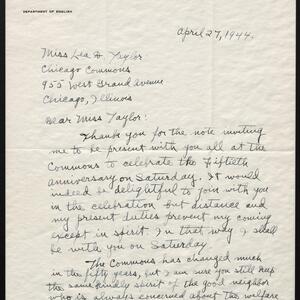 DEPARTMENT OF ENGLISH
April 27, 1944.
Miss Lea D. Taylor
Chicago Commons
955 West Grand Avenue
Chicago, Illinois
Dear Miss Taylor:
Thank you for the note inviting
me to be present with you all at the
Commons to celebrate the Fiftieth
anniversary on Saturday. It would
indeed be delightful to join with you
in the celebration but distance and
my present duties prevent my coming
except in spirit; in that way I shall
be with you on Saturday.
The Commons has changed much
in the fifty years, but I am sure you still keep
the same kindly spirit of the good neighbor
who is always concerned about the welfare